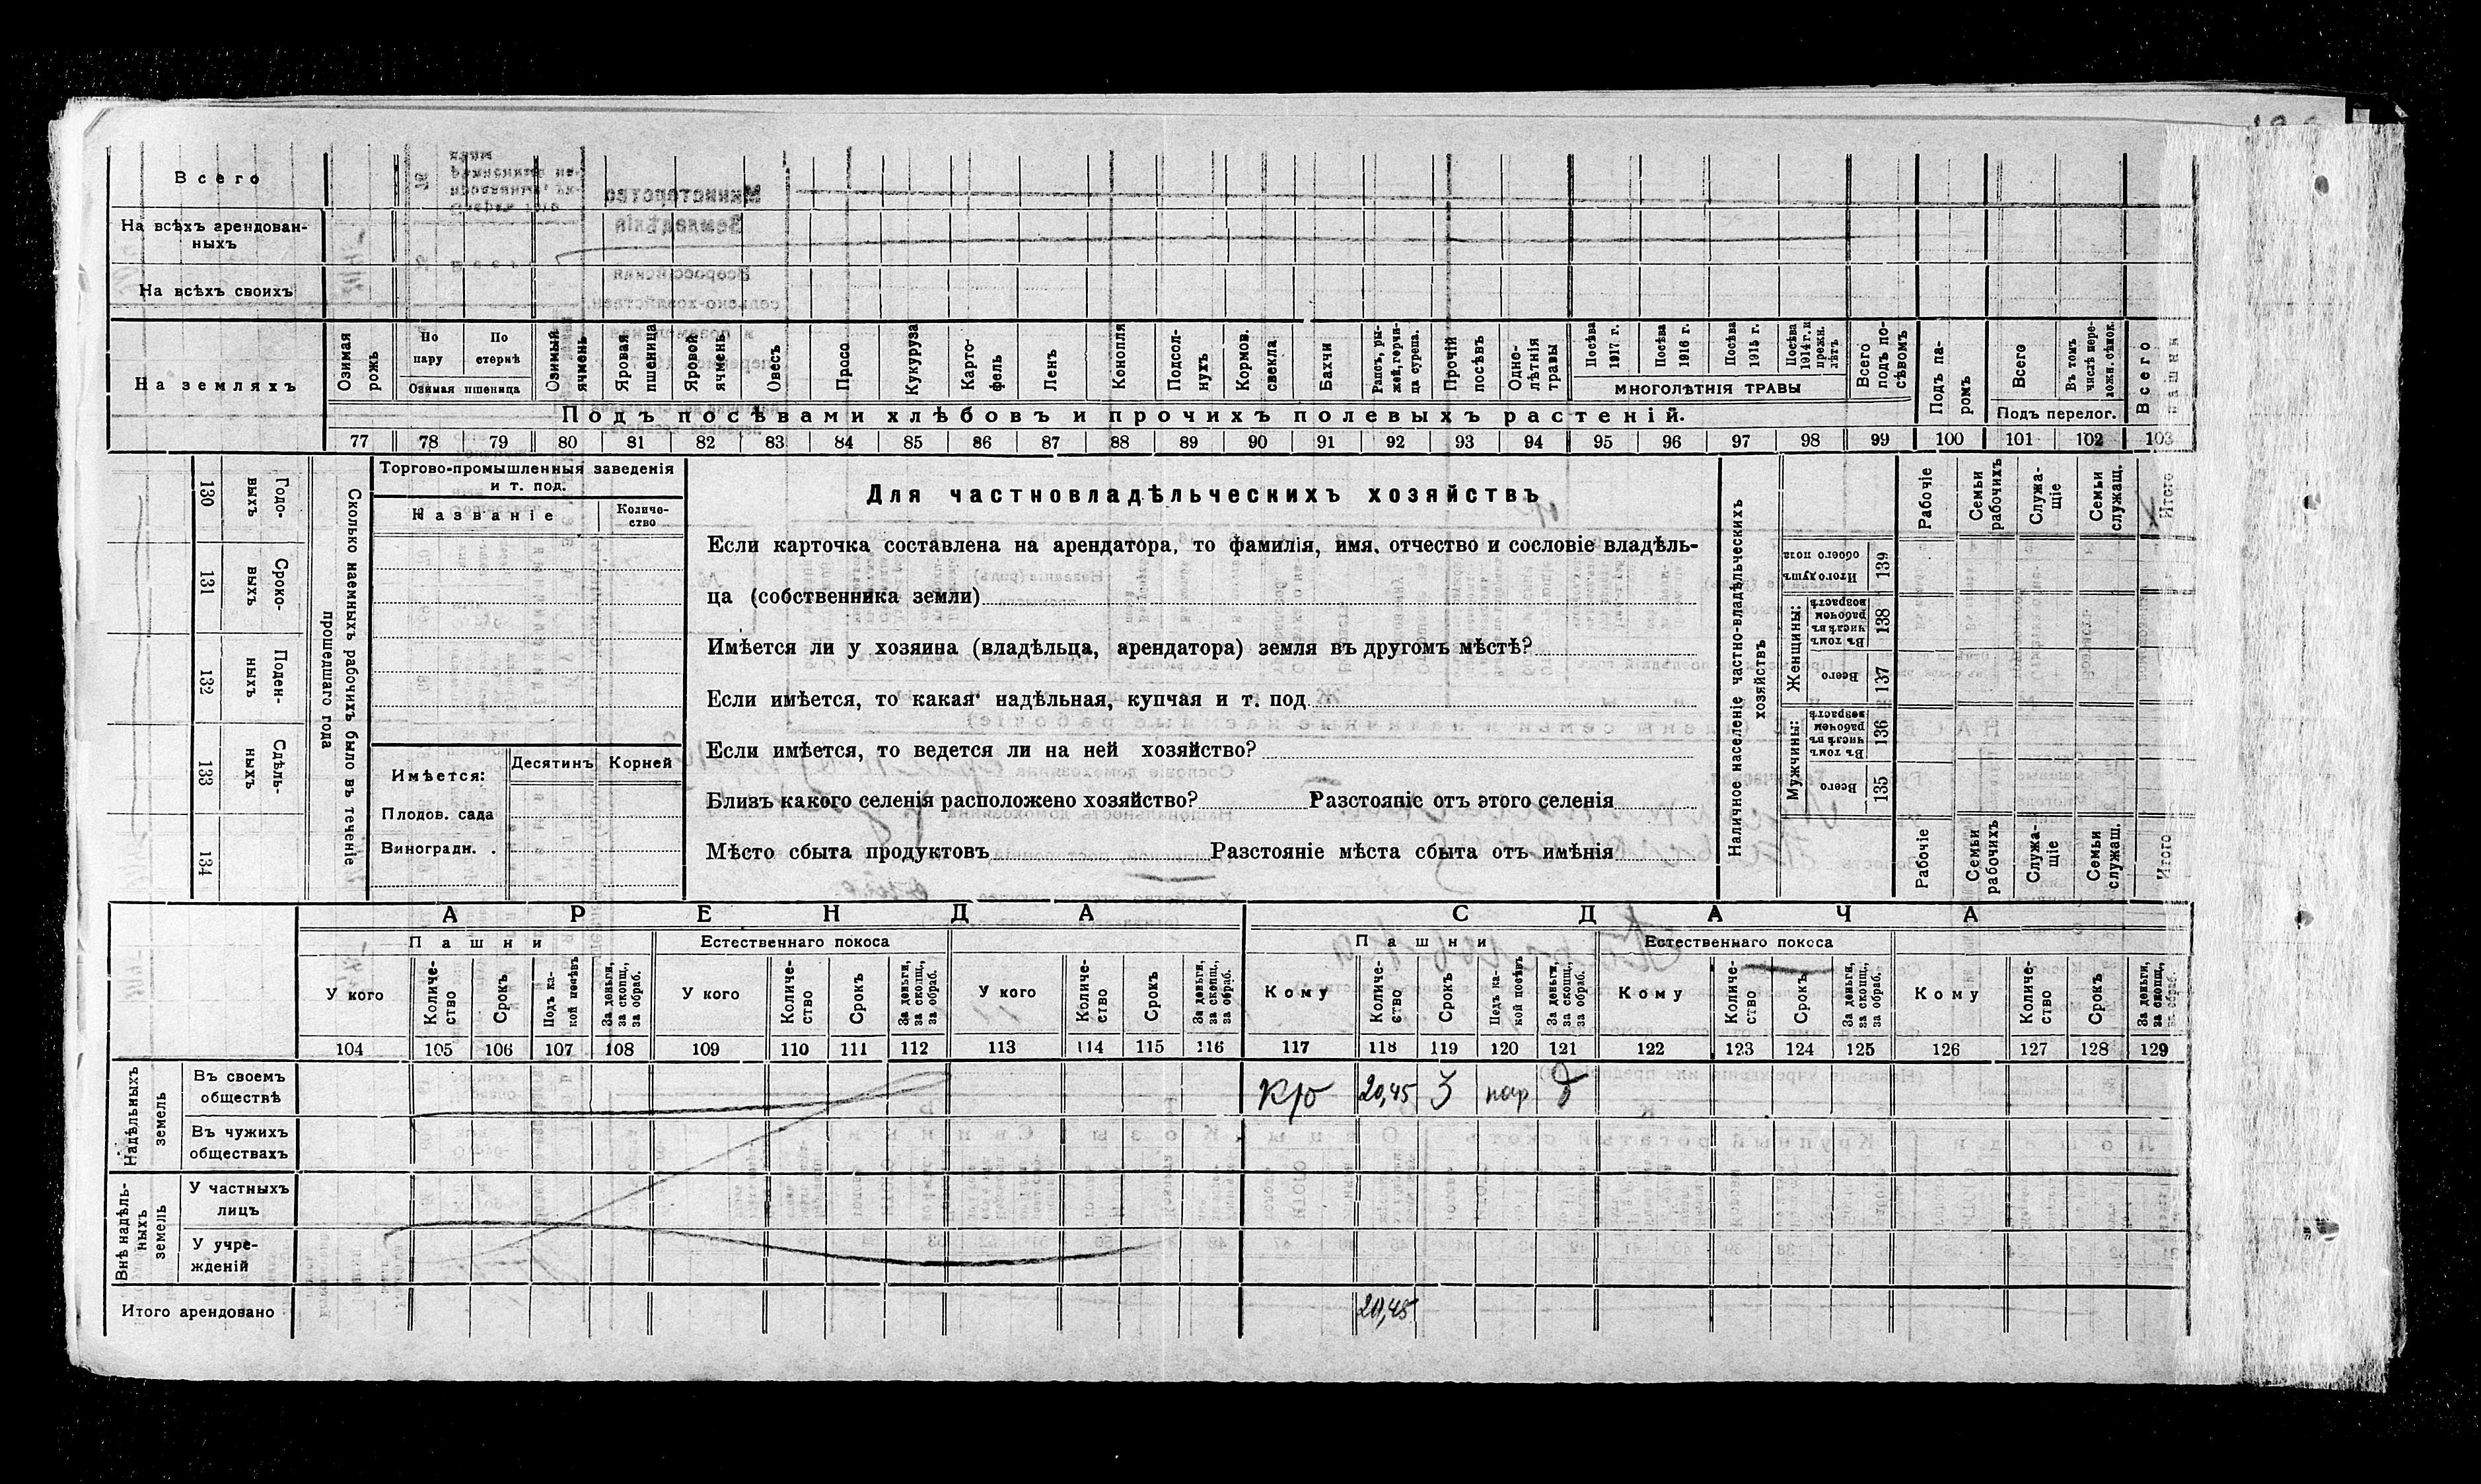 Всего
На всѣхъ арендован-
ныхъ
На всѣхъ своихъ
На земляхъ
Озимая рожь
По пару
По стернѣ
Озимая пшеница
Озимый ячмень
Яровая пшеница
Яровой ячмень
Овесъ
Просо
Кукуруза
Карто-
фель
Ленъ
Конопля
Подсол-
нухъ
Кормов. свекла
Бахчи
Рапсъ, ры-
жей, горчи-
ца сурепа.
Прочій посѣвъ
Одно-
лѣтнія травы
Посѣва 1917 г.
Посѣва 1916 г.
Посѣва 1915 г.
Посѣва 1914 г. и прежн. лѣтъ
МНОГОЛѢТНІЯ ТРАВЫ
Всего подъ по-
сѣвомъ
Подъ па-
ромъ
Всего
Въ томъ числѣ пере-
ложн. сѣнок.
Подъ перелог.
Всего пашни
Подъ посѣвами хлѣбовъ и прочихъ полевыхъ растеній.
77 78 79 80 81 82 83 84 85 86 87 88 89 90 91 92 93 94 95 96 97 98 99 100 101 102 103
130 Годо-
выхъ
131 Сроко-
выхъ
132 Поден-
ныхъ
133 Сдѣль-
ныхъ
134
Сколько наемныхъ рабочихъ было въ теченіе
прошедшаго года
Торгово-промышленныя заведенія
и т. под.
Названіе
Количе-
ство
Имѣется:
Десятинъ
Корней
Плодов. сада
Виноградн. .
Для частновладѣльческихъ хозяйствъ
Если карточка составлена на арендатора, то фамилія, имя, отчество и сословіе владѣль-
ца (собственника земли)
Имѣется ли у хозяина (владѣльца, арендатора) земля въ другомъ мѣстѣ?
Если имѣется, то какая: надѣльная, купчая и т. под
Если имѣется, то ведется ли на ней хозяйство?
Близъ какого селенія расположено хозяйство? Разстояніе отъ этого селенія
Мѣсто сбыта продуктовъ Разстояніе мѣста сбыта отъ имѣнія
Наличное населеніе частно-владѣльческихъ
хозяйствъ
Итого душъ обоего пола 139
Женщины:
Въ томъ числѣ въ рабочемъ возрастѣ 138
Всего 137
Мужчины:
Въ томъ числѣ въ рабочемъ возрастѣ 136
Всего 135
Рабочіе
Семьи рабочихъ
Служа-
щіе
Семьи служащ.
Итого
Рабочіе
Семьи рабочихъ
Служа-
щіе
Семьи служащ.
Итого
АРЕНДА
СДАЧА
Пашни
Естественнаго покоса
Пашни
Естественнаго покоса
У кого
Количе-
ство
Срокъ
Подъ ка-
кой посѣвъ
За деньги, за скопщ., за обраб.
У кого
Количе-
ство
Срокъ
За деньги, за скопщ., за обраб.
У кого
Количе-
ство
Срокъ
За деньги, за скопщ., за обраб.
Кому
Количе-
ство
Срокъ
Подъ ка-
кой посѣвъ
За деньги, за скопщ., за обраб.
Кому
Количе-
ство
Срокъ
За деньги, за скопщ., за обраб.
Кому
Количе-
ство
Срокъ
За деньги, за скопщ., за обраб.
104 105 106 107 108 109 110 111 112 113 114 115 116 117 118 119 120 121 122 123 124 125 126 127 128 129
Надѣльныхъ земель
Въ своемъ
обществѣ
20,45 3 пар
Въ чужихъ
обществахъ
Внѣ надѣль-
ныхъ земель
У частныхъ
лицъ
У учре-
жденій
Итого арендовано
20,45